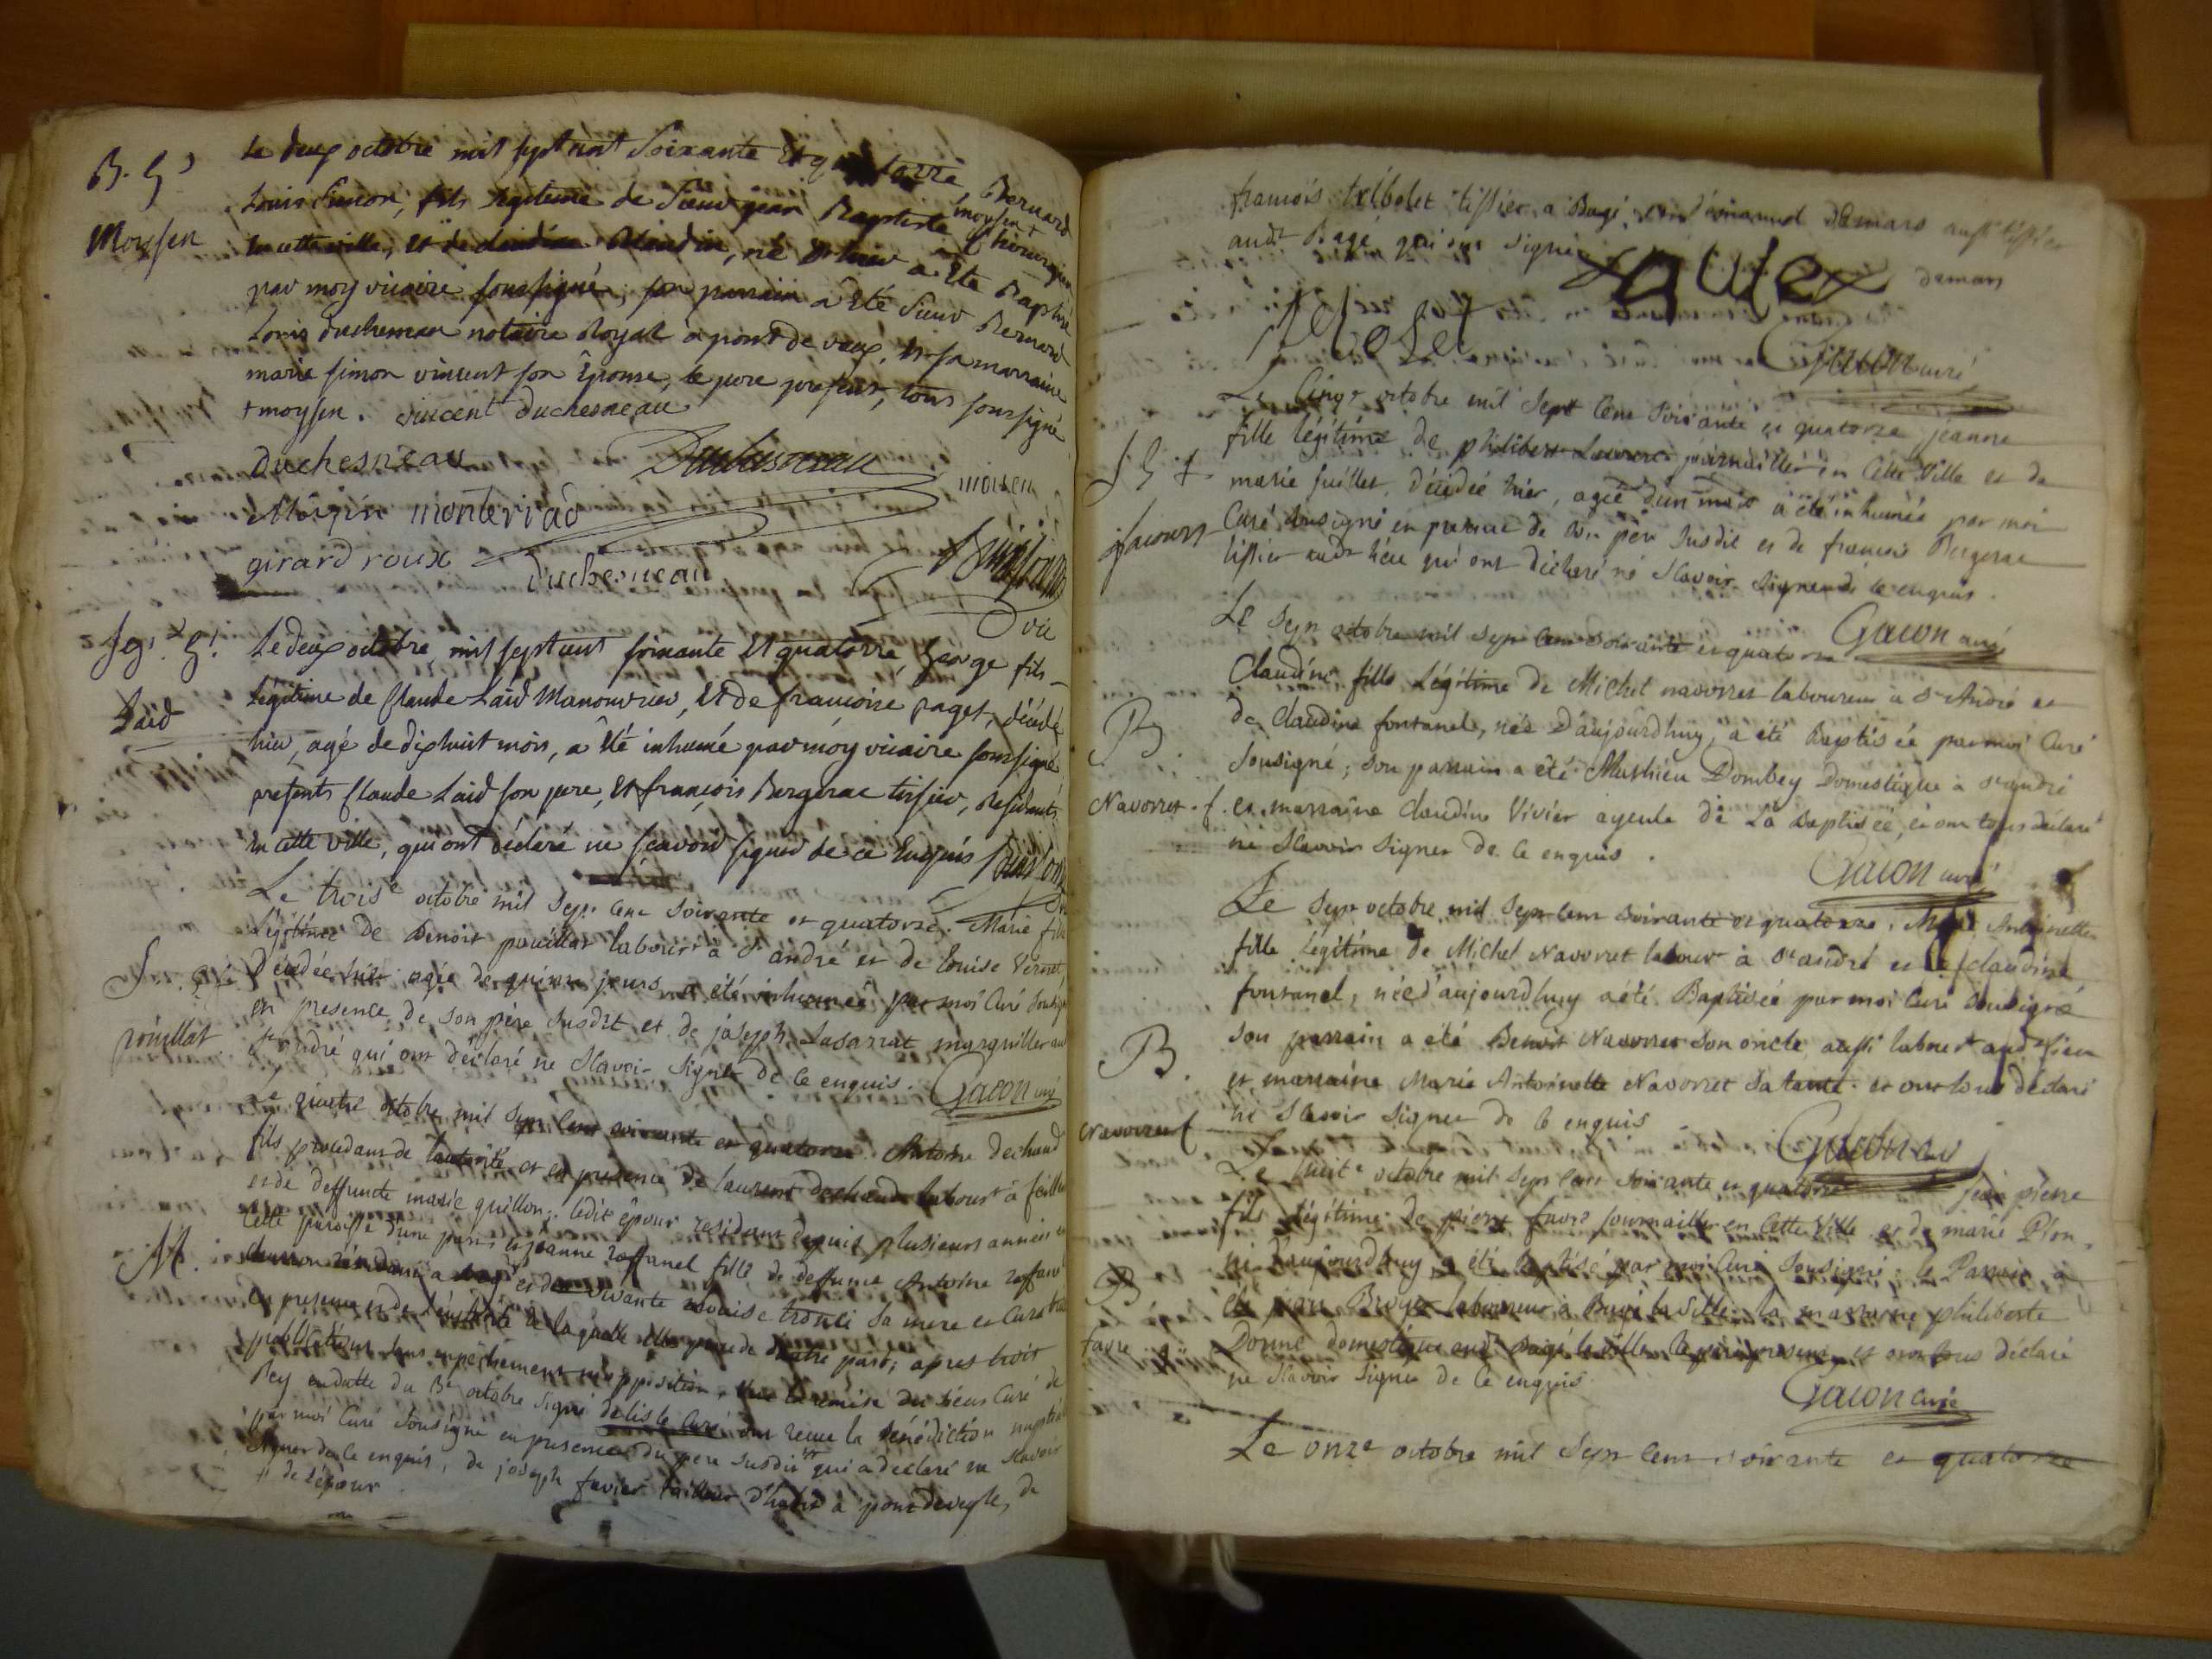 B. G.
Moysen
Le deux octobre mil sept cent soixante et quatorze, Bernard
Louis Simon, fils legitime de Sieur jean Baptiste moysen + Chirurgien
en cette ville, et de claudine Blondin, né hier a été Baptisé
par moy vicaire soussigné, son parrain a été sieur Bernard
Louis duchesneau notaire Royal à pont de vaux, et sa marraine
marie simon vincent son épouse, le pere present, tous soussigné
+ moysen. vincent duchesneau
duchesneau
moisen
monterrad
girard roux
duchesneau
vic
Laid
Le deux octobre mil sept cent soixante et quatorze, George fils
legitime de Claude Laid Manouvrier, et de francoise paget, décédé
hier, agé de dix huit mois, a été inhumé par moy vicaire soussigné
presents Claude Laid son pere, et françois Bergerac tissier, residents
en cette ville, qui ont déclaré ne scavoir signer de ce enquis
Le trois octobre mil sept cent soixante et quatorze. Marie fille
légitime de Benoit pouillat labourr à st andré et de louise
décédée hier agée de quinze jours a été inhumée par moi curé
pouillat
en presence de son père susdit et de joseph Lasarrat marguillier
st andré qui ont déclaré ne scavoir signer de ce enquis. Gacon curé
M.
Le quatre octobre mil sept cent soixante et quatorze. Antoine dechaud
fils procedant de l'autorité et en presence de laurent dechaud labourr à
et de deffuncte marie quillon, ledit époux residant depuis plusieurs années en
cette paroisse d'une part et jeanne raffanel fille de deffunct Antoine
et de vivante Louise sa mere
en presence et de l'autorité de laquelle elle procede d'autre part; apres trois
publications sans empechement ni opposition, la remise du sieur Curé de
Rey en datte du 3e octobre signé delisle Curé ont recue la bénédiction nuptiale
par moi Curé sousigné en presence du pere susdit qui a declaré ne scavoir
signer de ce enquis, de joseph favier tailleur d'habit à pont de veyle, de
# de l'époux
françois tribolet tissier a Bagé, emanuel demars aussi tissier
audt Bagé qui ont signé
demars
Gacon curé
Le Cinq octobre mil sept cent soixante et quatorze jeanne
fille légitime de philibert journaillier en cette Ville et de
marie feuillet, décédée hier, agée d'un mois a été inhumée par moi
Curé sousigné en presence de son père susdit et de francois Bergerac
tissier audt lieu qui ont déclaré ne scavoir signer de ce enquis.
Gacon curé
Le sept octobre mil sept cent soixante et quatorze
Claudine fille légitime de Michel navorret laboureur à st André et
B.
de Claudine fontanel, née d'aujourdhuy, a été Baptisée par moi curé
sousigné; son parrain a été Mathieu Dombey Domestique a st andré
Navorret
et marraine Claudine Vivier ayeule de la Baptisée, et ont tous declaré
ne scavoir signer de ce enquis.
Gacon curé
Le sept octobre mil sept cent soixante et quatorze, Marie Antoinette
fille Legitime de Michel Navorret labourr à st andré et de claudine
fontanel, née d'aujourdhuy a été Baptisée par moi curé sousigné
B.
son parrain a été Benoit Navorret son oncle aussi labourr audt lieu
et marraine Marie Antoinette Navorret sa tante. et ont tous déclaré
ne scavoir signer de ce enquis
Navorret
Gacon curé
Le huit octobre mil sept cent soixante et quatorze jean pierre
fils légitime de pierre favre journaillier en cette Ville et de marie Pion,
né d'aujourdhuy a été baptisé par moi curé sousigné; le Parrain a
B
été jean Broyer laboureur à Bagé la ville. la marraine philiberte
favre
Donne domestique audt Bagé la ville le père present et ont tous déclaré
ne scavoir signer de ce enquis
Gacon curé
Le onze octobre mil sept cent soixante et quatorze